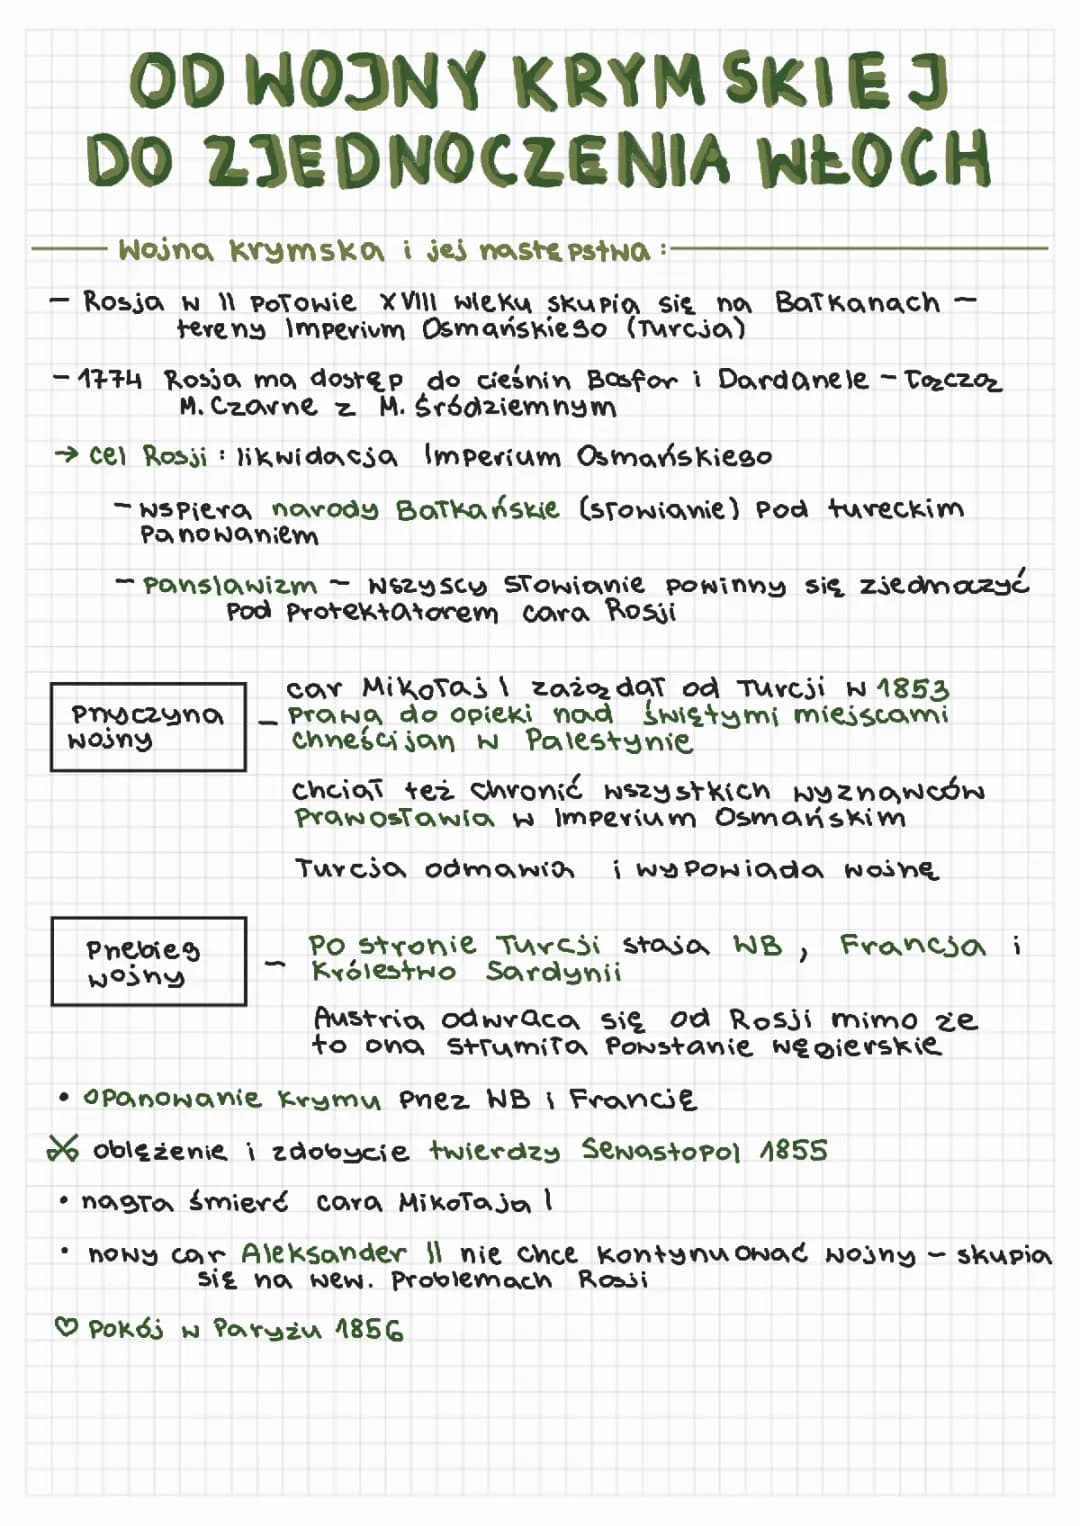 OD WOJNY KRYMSKIEJ
DO ZJEDNOCZENIA WŁOCH
Wojna krymska i jej następstwa :
– Rosja w II połowie XVIII wieku skupia się na Bałkanach –
tereny Imperium Osmańskiego (Turcja)
– 1774 Rosja ma dostęp do cieśnin Bosfor i Dardanele – łączą
M. Czarne z M. śródziemnym
→ cel Rosji : likwidacja Imperium Osmańskiego
– wspiera narody Bałkańskie (słowianie) pod tureckim
panowaniem
– panslawizm – wszyscy słowianie powinny się zjednoczyć
pod protektatorem cara Rosji
przyczyna
wojny
– car Mikołaj I zażądał od Turcji w 1853
prawa do opieki nad świętymi miejscami
chrześcijan w Palestynie
chciał też chronić wszystkich wyznawców
prawosławia w Imperium Osmańskim
Turcja odmawia i wypowiada wojnę
Przebieg
wojny
– Po stronie Turcji stają WB , Francja i
Królestwo Sardynii
Austria odwraca się od Rosji mimo że
to ona stłumiła Powstanie węgierskie
• opanowanie Krymu przez WB i Francję
oblężenie i zdobycie twierdzy Sewastopol 1855
• nagła śmierć cara Mikołaja I
• nowy car Aleksander II nie chce kontynuować wojny – skupia
się na wew. problemach Rosji
♡ pokój w Paryżu 1856